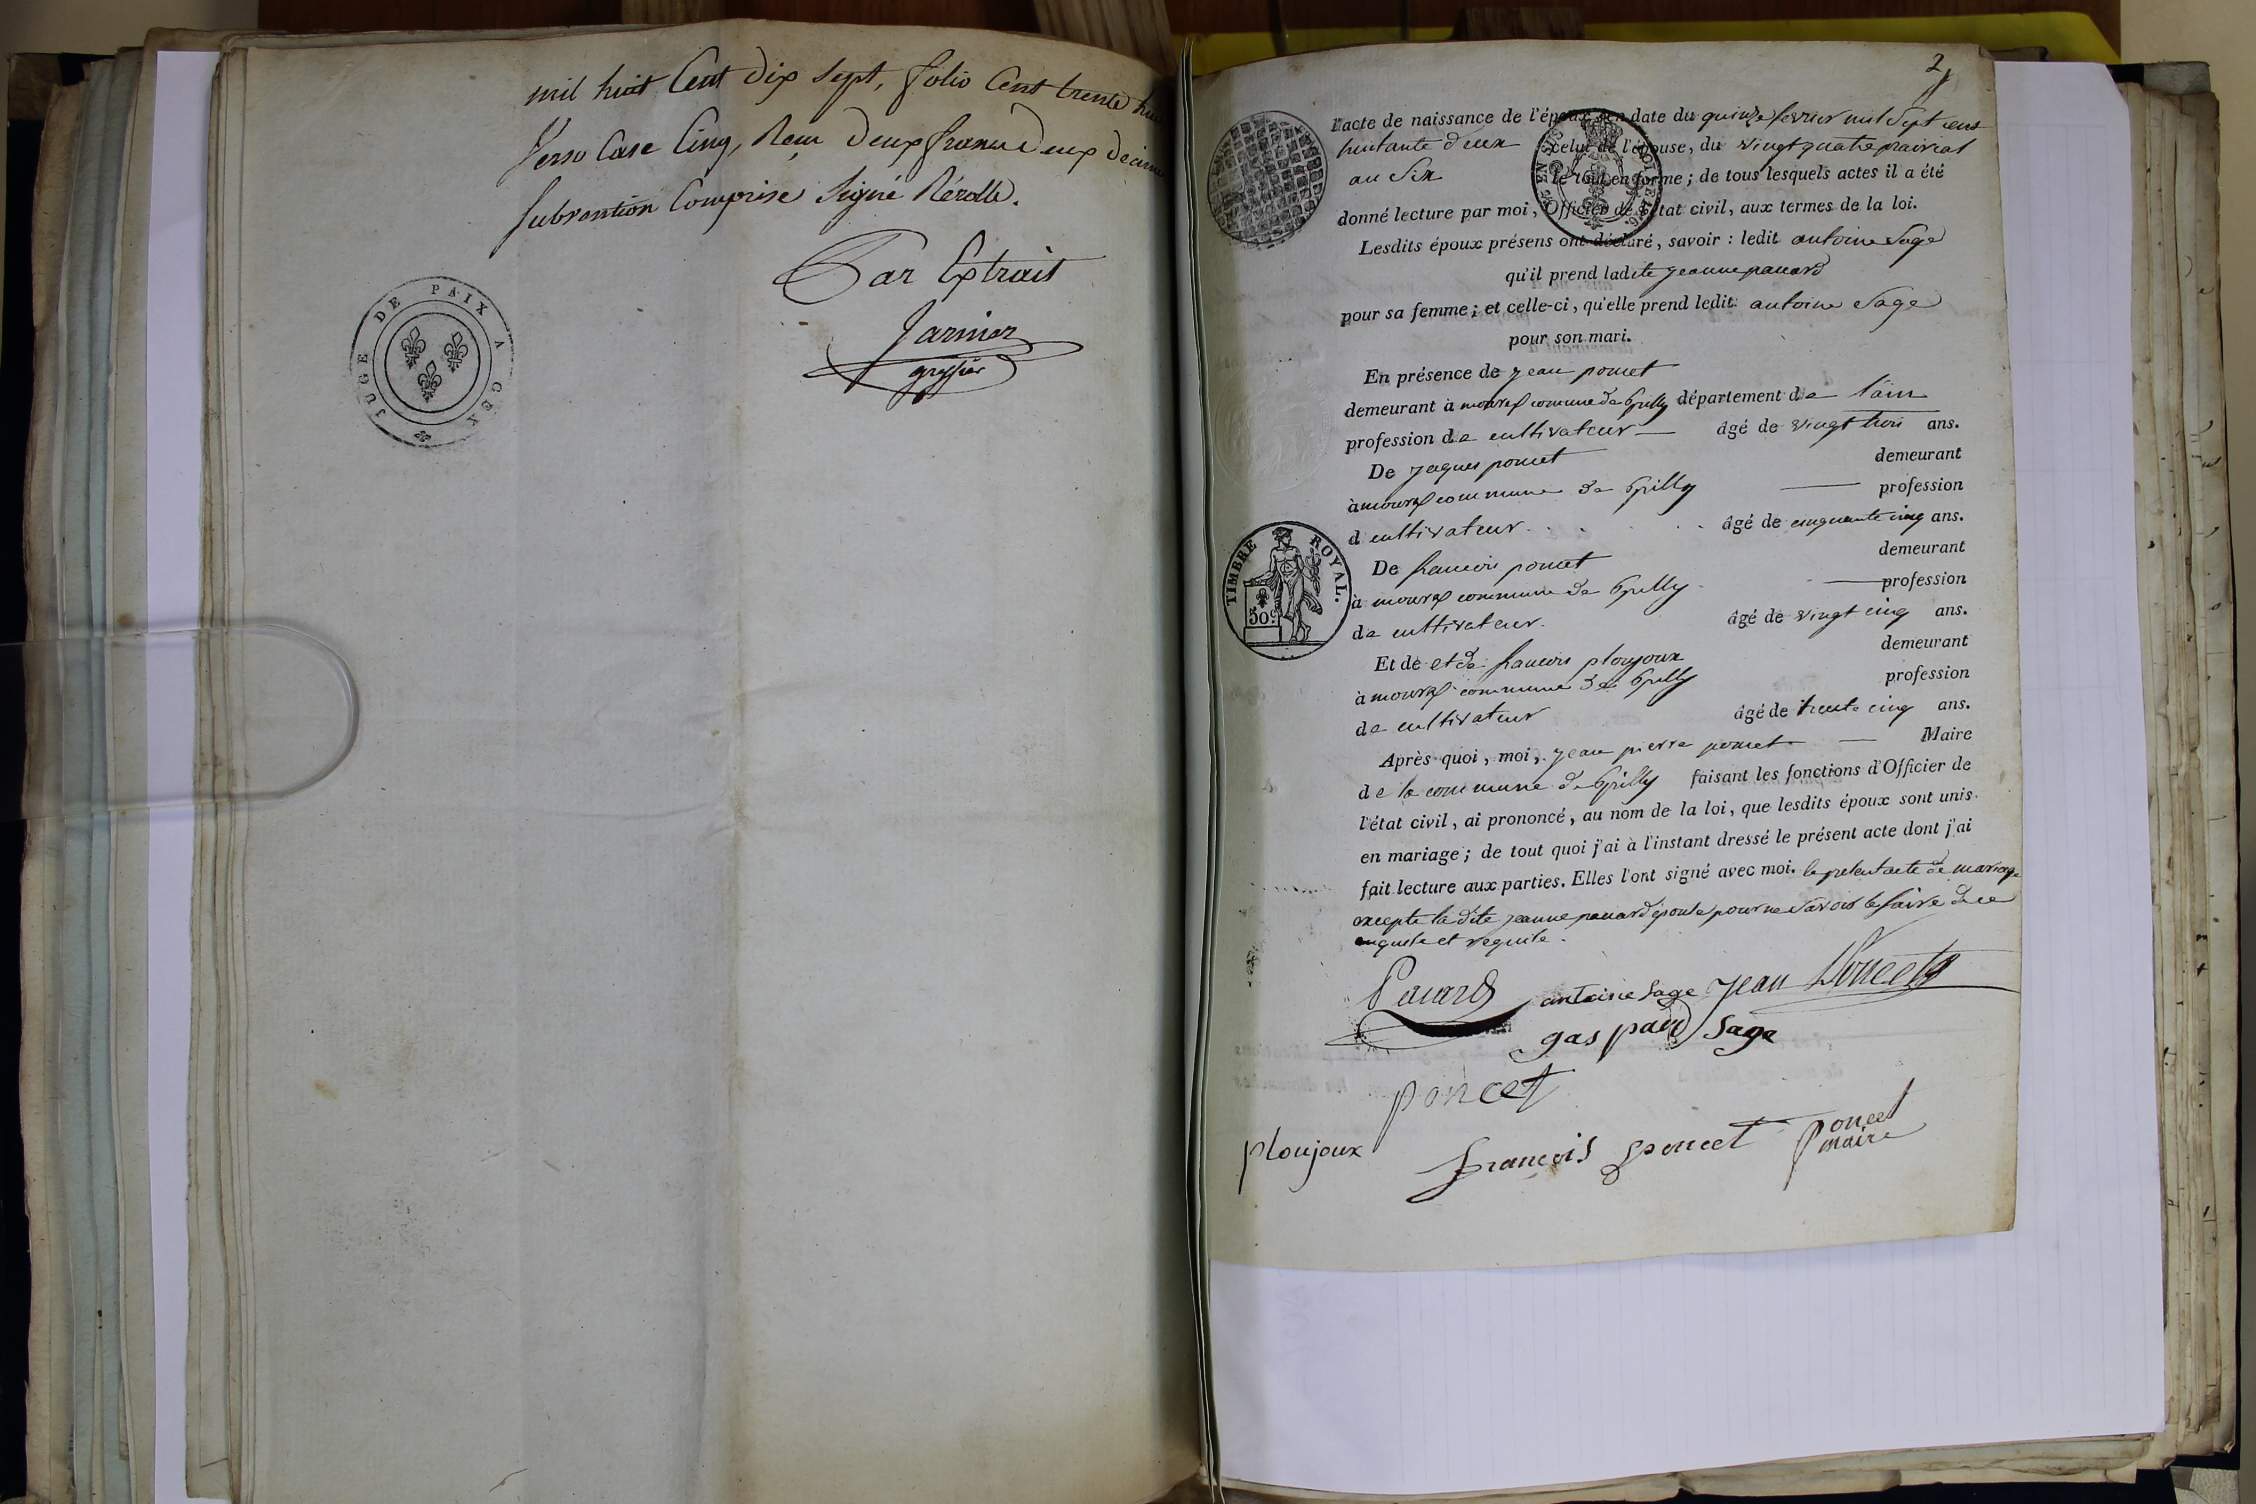 mil huit Cent dix sept, folio Cent trente
Verso Case Cinq, Reçu Deux francs Deux decimes
Subvention Comprise Signé Rérolle.
Par Extrait
Jarnier
greffier
JUGE DE PAIX A GEX
2
l'acte de naissance de l'époux, en date du quinze fevrier mil Sept cent
huitante deux celui de l'épouse, du vingt quatre prairial
an Six le tout en forme; de tous lesquels actes il a été
donné lecture par moi, Officier de l'état civil, aux termes de la loi.
Lesdits époux présens ont déclaré, savoir : ledit antoine Sage
qu'il prend ladite jeanne panard
pour sa femme; et celle-ci, qu'elle prend ledit antoine Sage
pour son mari.
En présence de jean poncet
demeurant à mourex commune de Grilly département de l'ain
profession de cultivateur âgé de vingt trois ans.
De jaques poncet demeurant
à mourex commune de Grilly profession
d cultivateur âgé de cinquante cinq ans.
De francois poncet demeurant
à mourex commune de Grilly profession
de cultivateur. âgé de vingt cinq ans.
Et de et de francois ploujoux demeurant
à mourex commune de Grilly profession
de cultivateur âgé de trente cinq ans.
Après quoi, moi, jean pierre poncet Maire
de la commune de Grilly faisant les fonctions d'Officier de
l'état civil, ai prononcé, au nom de la loi, que lesdits époux sont unis
en mariage; de tout quoi j'ai à l'instant dressé le présent acte dont j'ai
fait lecture aux parties. Elles l'ont signé avec moi. le present acte de mariage
excepte la dite jeanne panard epouse pour ne Savoir le faire de ce
enquise et requise.
TIMBRE ROYAL.
50c
Panard antoine Sage Jean Poncet
gaspard Sage
poncet
ploujoux françois poncet poncet
maire